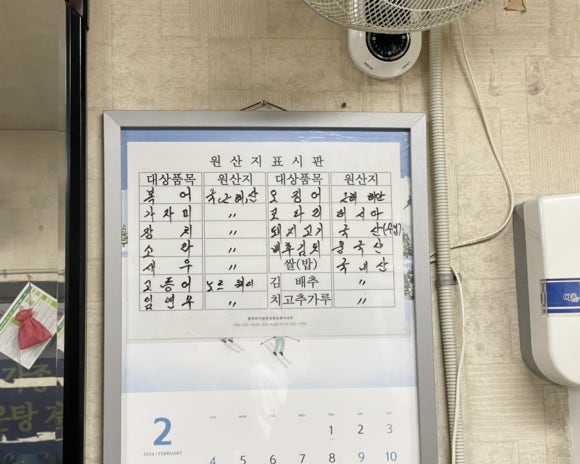 원산지표시판
대상품목 원산지 대상품목 원산지
복어 국(근해)산 오징어 근해산
가자미 〃 코다리 러시아
꽁치 〃 돼지고기 국산
소라 〃 배추김치 중국산
새우 〃 쌀(밥) 국내산
고등어 노르웨이 김 배추 〃
임연수 〃 치 고추가루 〃
2
2024 / FEBRUARY
SUN MON TUE WED THU FRI SAT
1 2 3
4 5 6 7 8 9 10